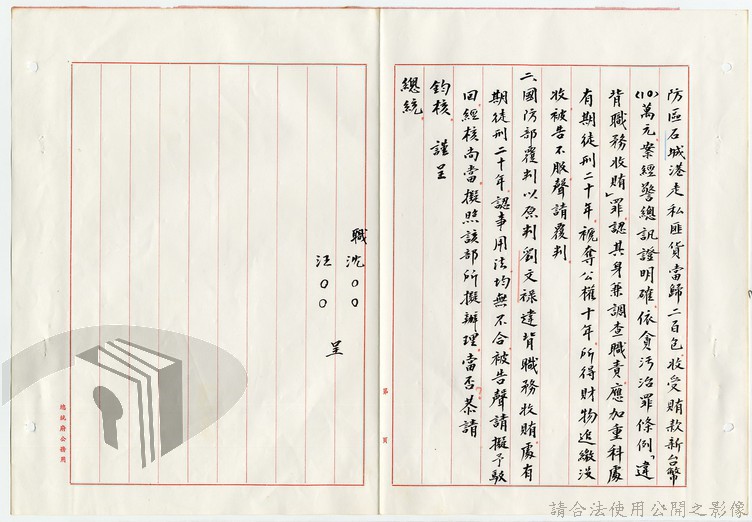 防區石城港走私匪貨當歸二百包收受賄款新台幣
(10)萬元案經警總訊證明確依貪污治罪條例「違
背職務收賄」罪認其身兼調查職責應加重科處
有期徒刑二十年褫奪公權十年所得財物追繳沒
收被告不服聲請覆判
二、國防部覆判以原判劉文祿違背職務收賄處有
期徒刑二十年認事用法均無不合被告聲請擬予駁
回經核尚當擬照該部所擬辦理當否恭請
鈞核 謹呈
總統
職 沈〇〇
汪〇〇 呈
第 頁
總統府公務用
請合法使用公開之影像